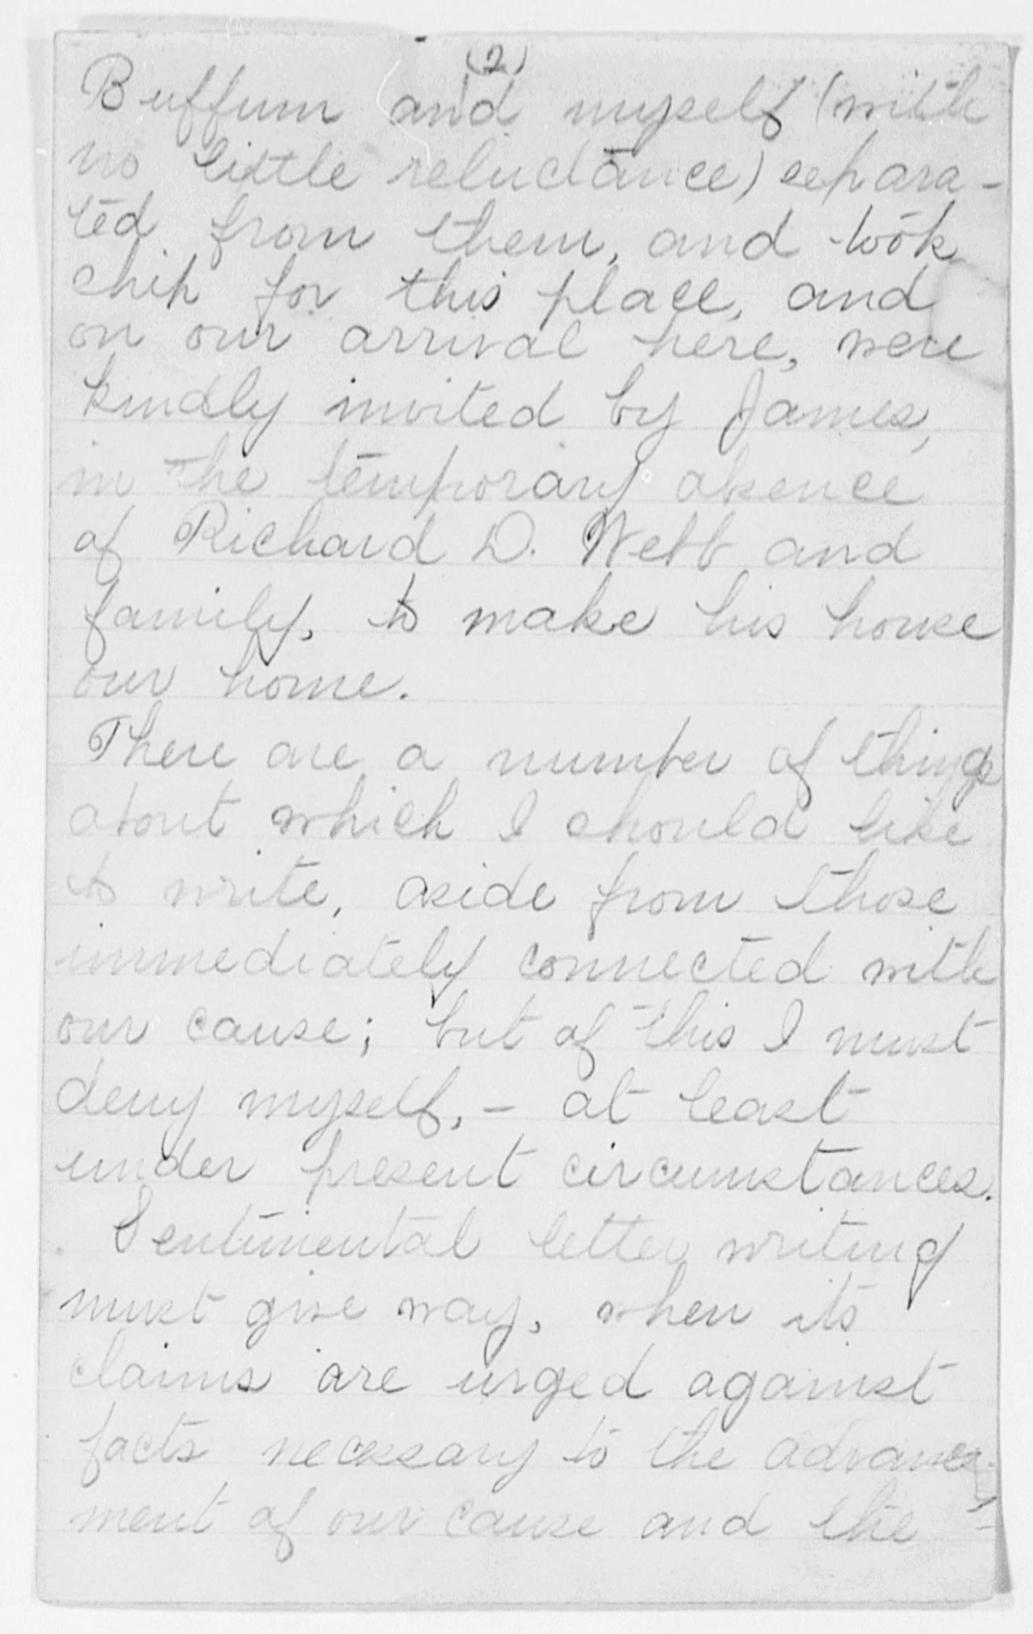 (2)
Buffum and myself (with
no little reluctance) separa-
ted from them, and took
ship for this place, and
on our arrival here, were
kindly invited by James,
in the temporary absence
of Richard D. Webb and
family, to make his house
our home.
There are a number of things
about which I should like
to write, aside from those
immediately connected with
our cause; but of this I must
deny myself, - at least
under present circumstances.
Sentimental letter writing
must give way, when its
claims are urged against
facts necessary to the advance-
ment of our cause and the